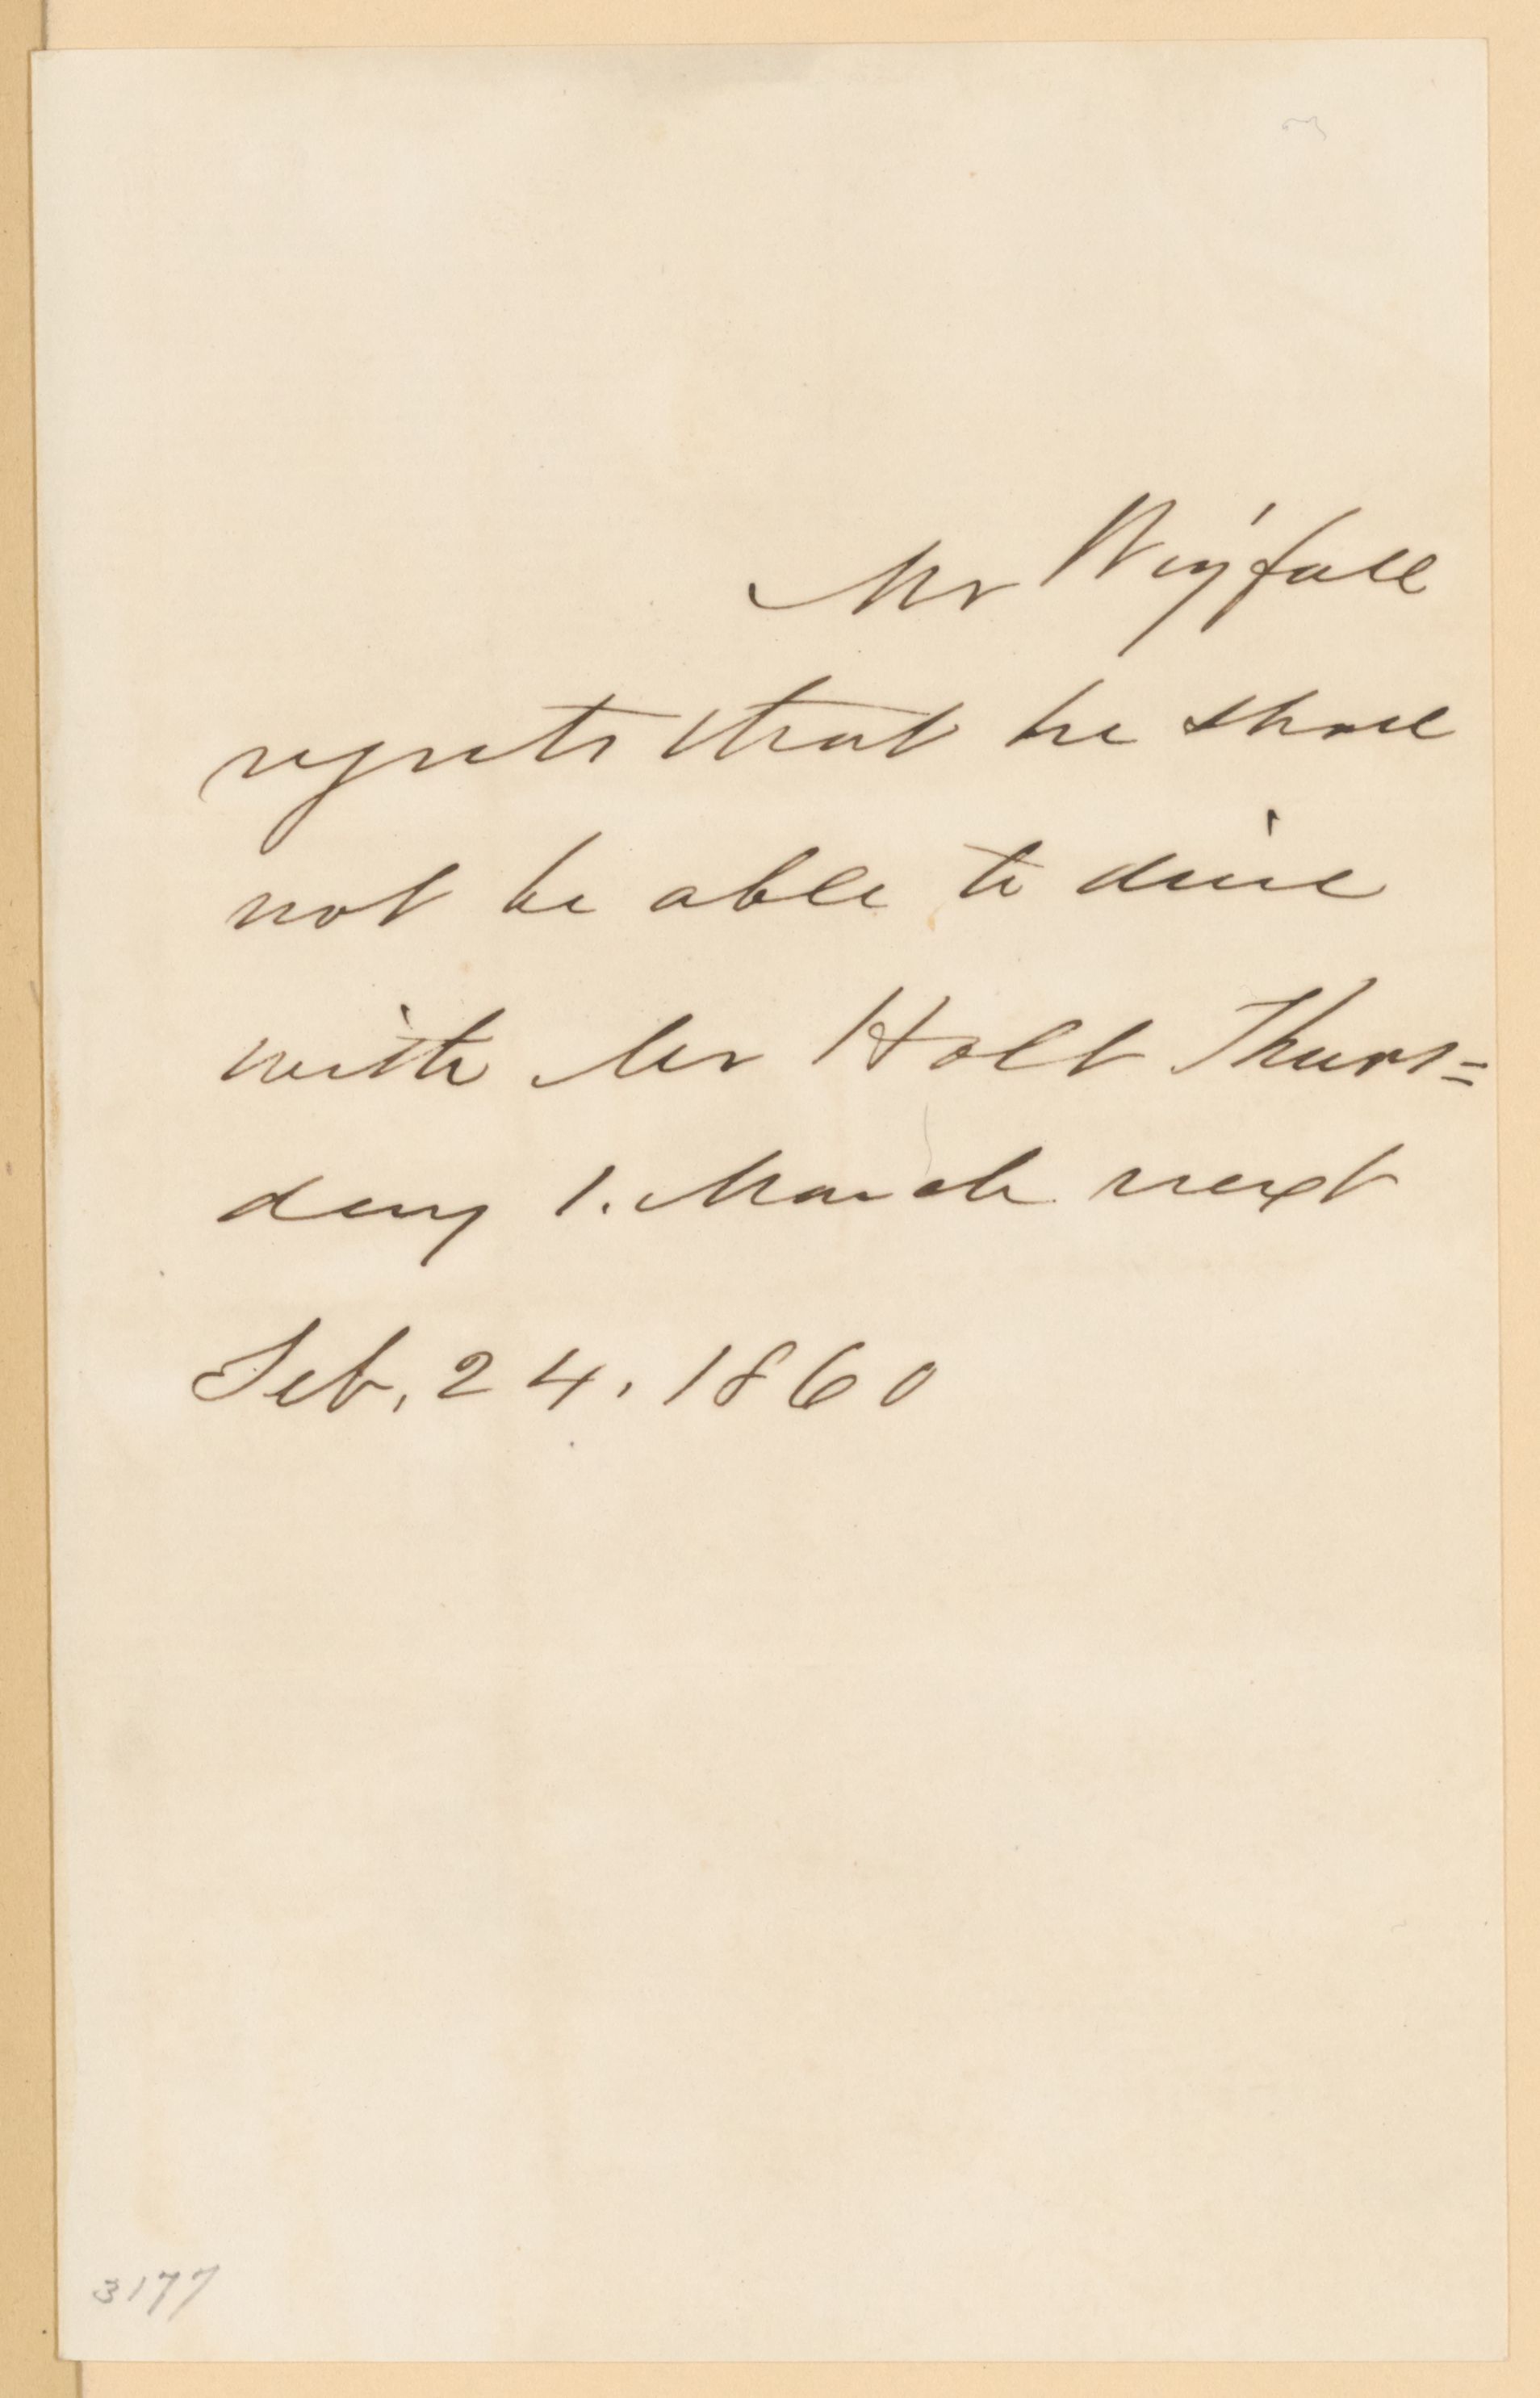 Mr Wigfall
regrets that he shall
not be able to dine
with Mr Holt Thurs=
day 1. March next
Feb. 24. 1860
3177